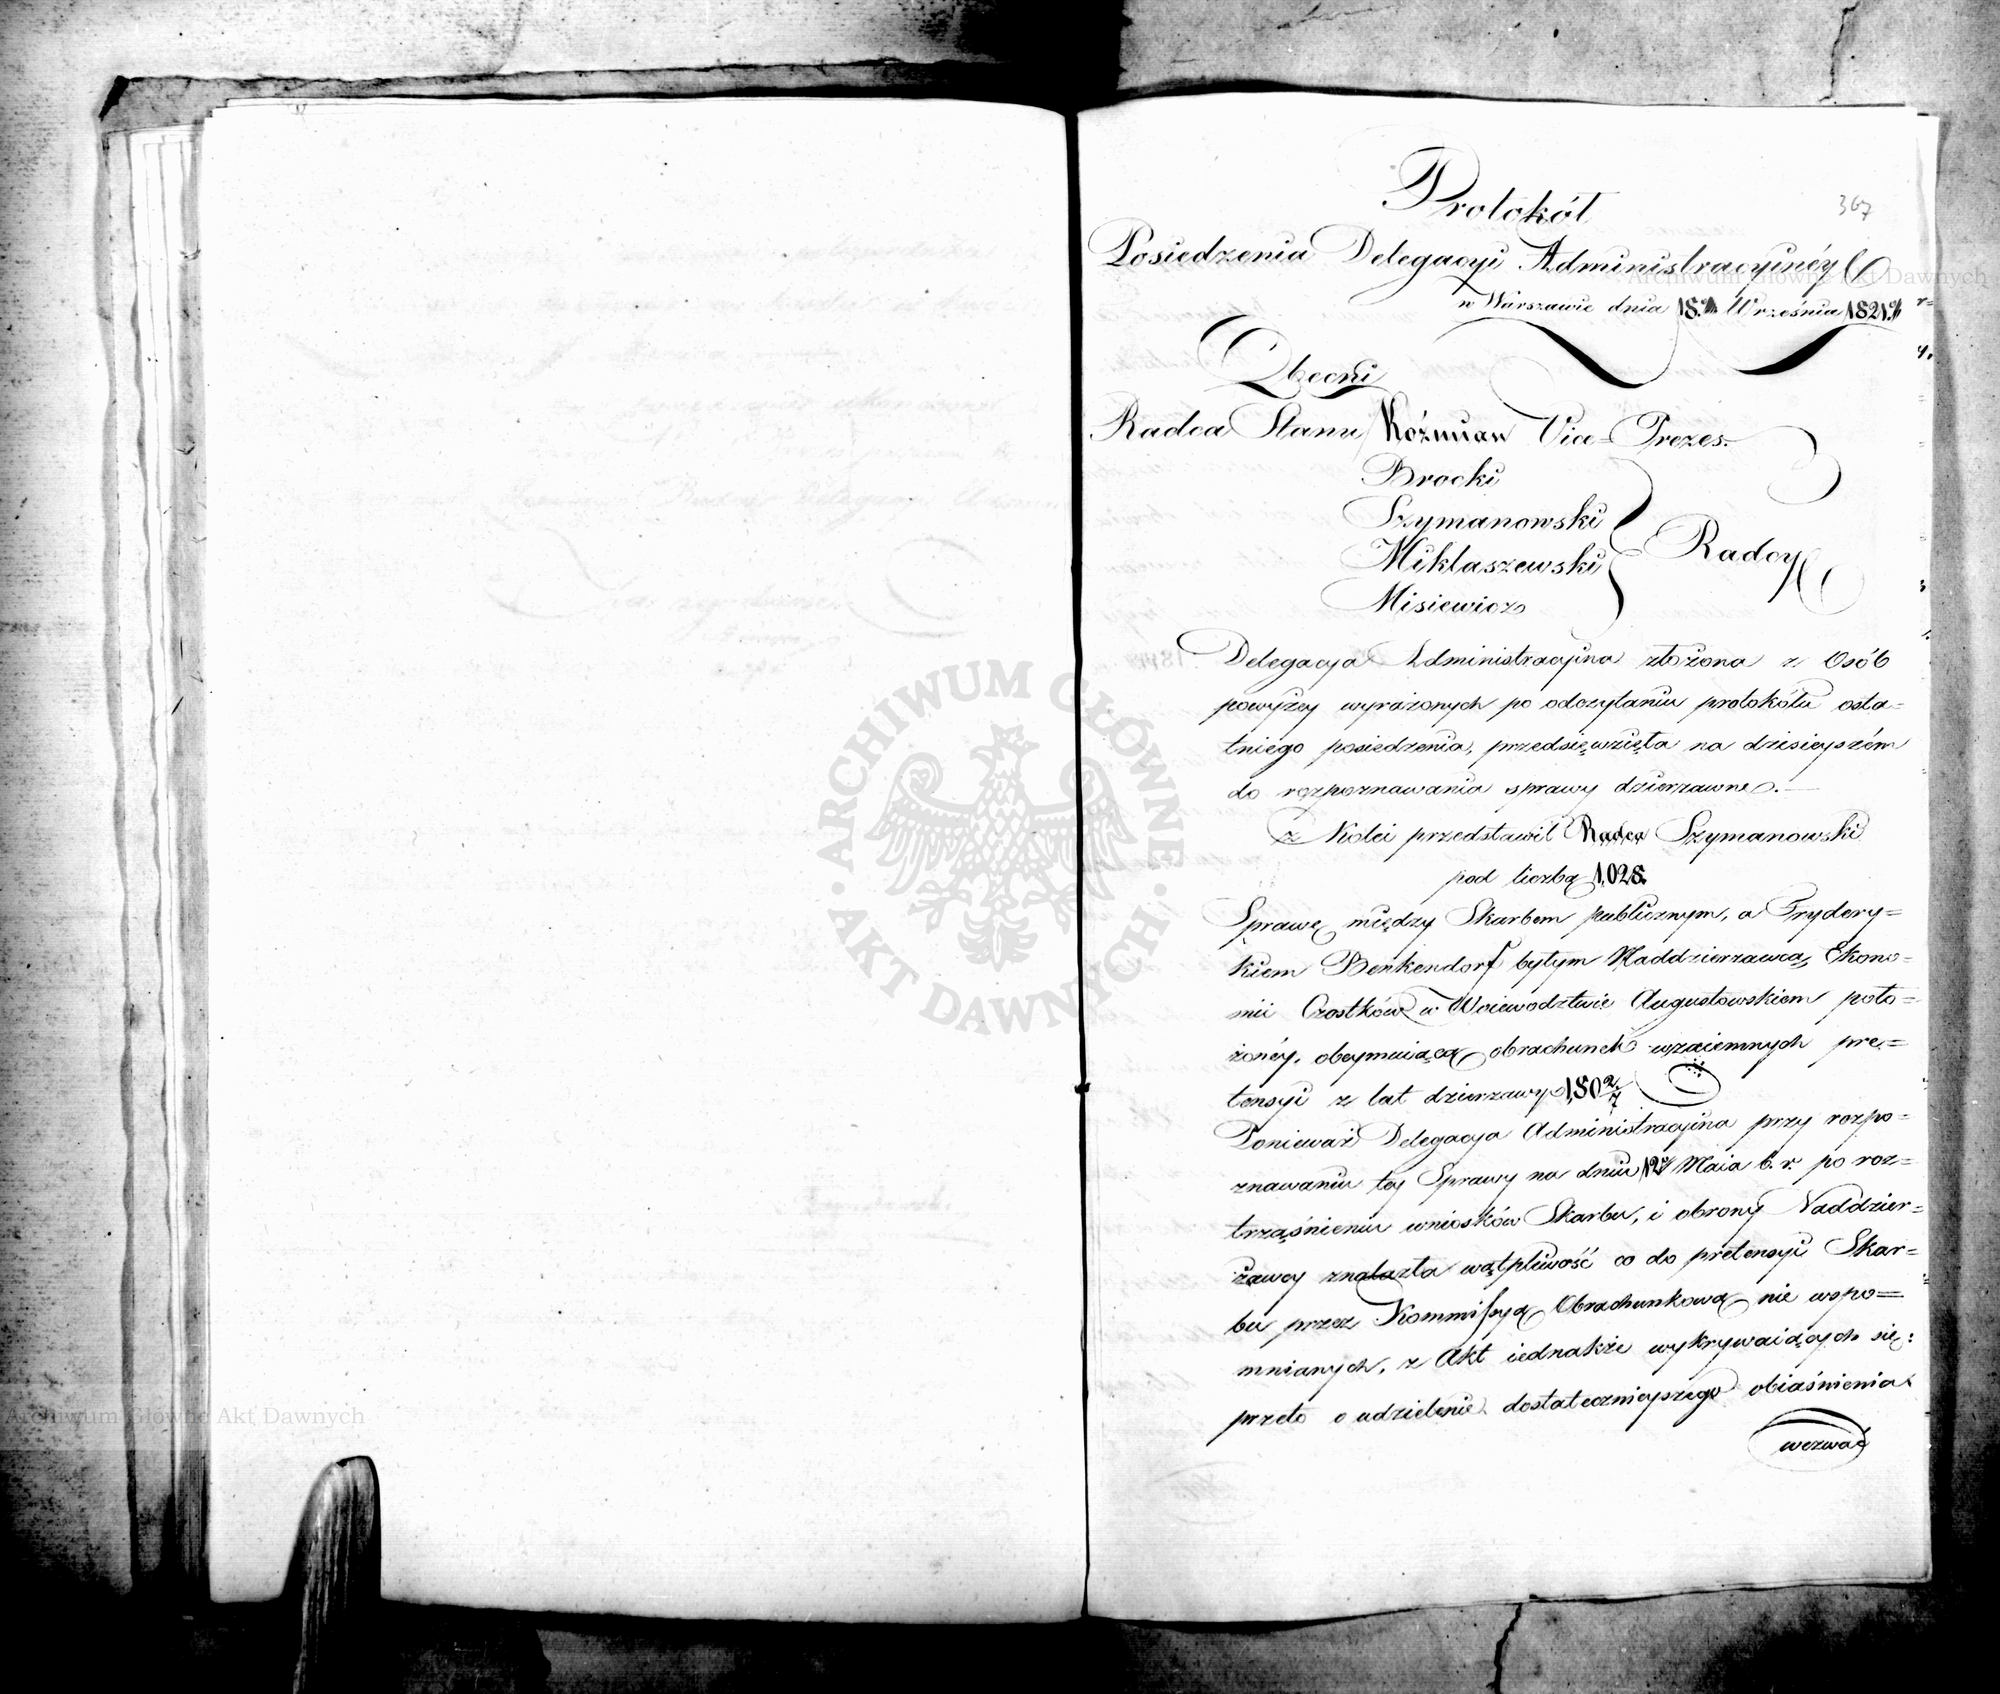 367
Protokół
Posiedzenia Delegacyi Administracyinéy
w Warszawie dnia 18. Września 1821.
Obecni
Radca Stanu Koźmian Vice-Prezes.
Brocki
Szymanowski
Miklaszewski
Misiewicz
Radcy
Delegacya Administracyina złożona z Osób
powyżey wyrażonych po odczytaniu protokółu osta=
tniego posiedzenia, przedsięwzięła na dzisieyszém
do rozpoznawania sprawy dzierzawne.
z Kolei przedstawił Radca Szymanowski
pod liczbą 1,028.
Sprawę między Skarbem publicznym, a Frydery=
kiem Benkendorf byłym Naddzierzawcą Ekono=
mii Czostków w Woiewodztwie Augustowskiem poło=
żonéy, obeymuiącą obrachunek wzaiemnych pre=
tensyi z lat dzierzawy 1,80 2/7
Ponieważ Delegacya Administracyina przy rozpo=
znawaniu tey Sprawy na dniu 12 Maia b. r. po roz=
trząśnieniu wniosków Skarbu, i obrony Naddzier=
żawcy znalazła wątpliwość co do pretensyi Skar=
bu przez Kommissyą Obrachunkową nie wspo=
mnianych, z Akt iednakże wykrywaiących się:
przeto o udzielenie dostatecznieyszego obiaśnienia
wezwać
ARCHIWUM GŁÓWNE · AKT DAWNYCH ·
Archiwum Główne Akt Dawnych
Archiwum Główne Akt Dawnych